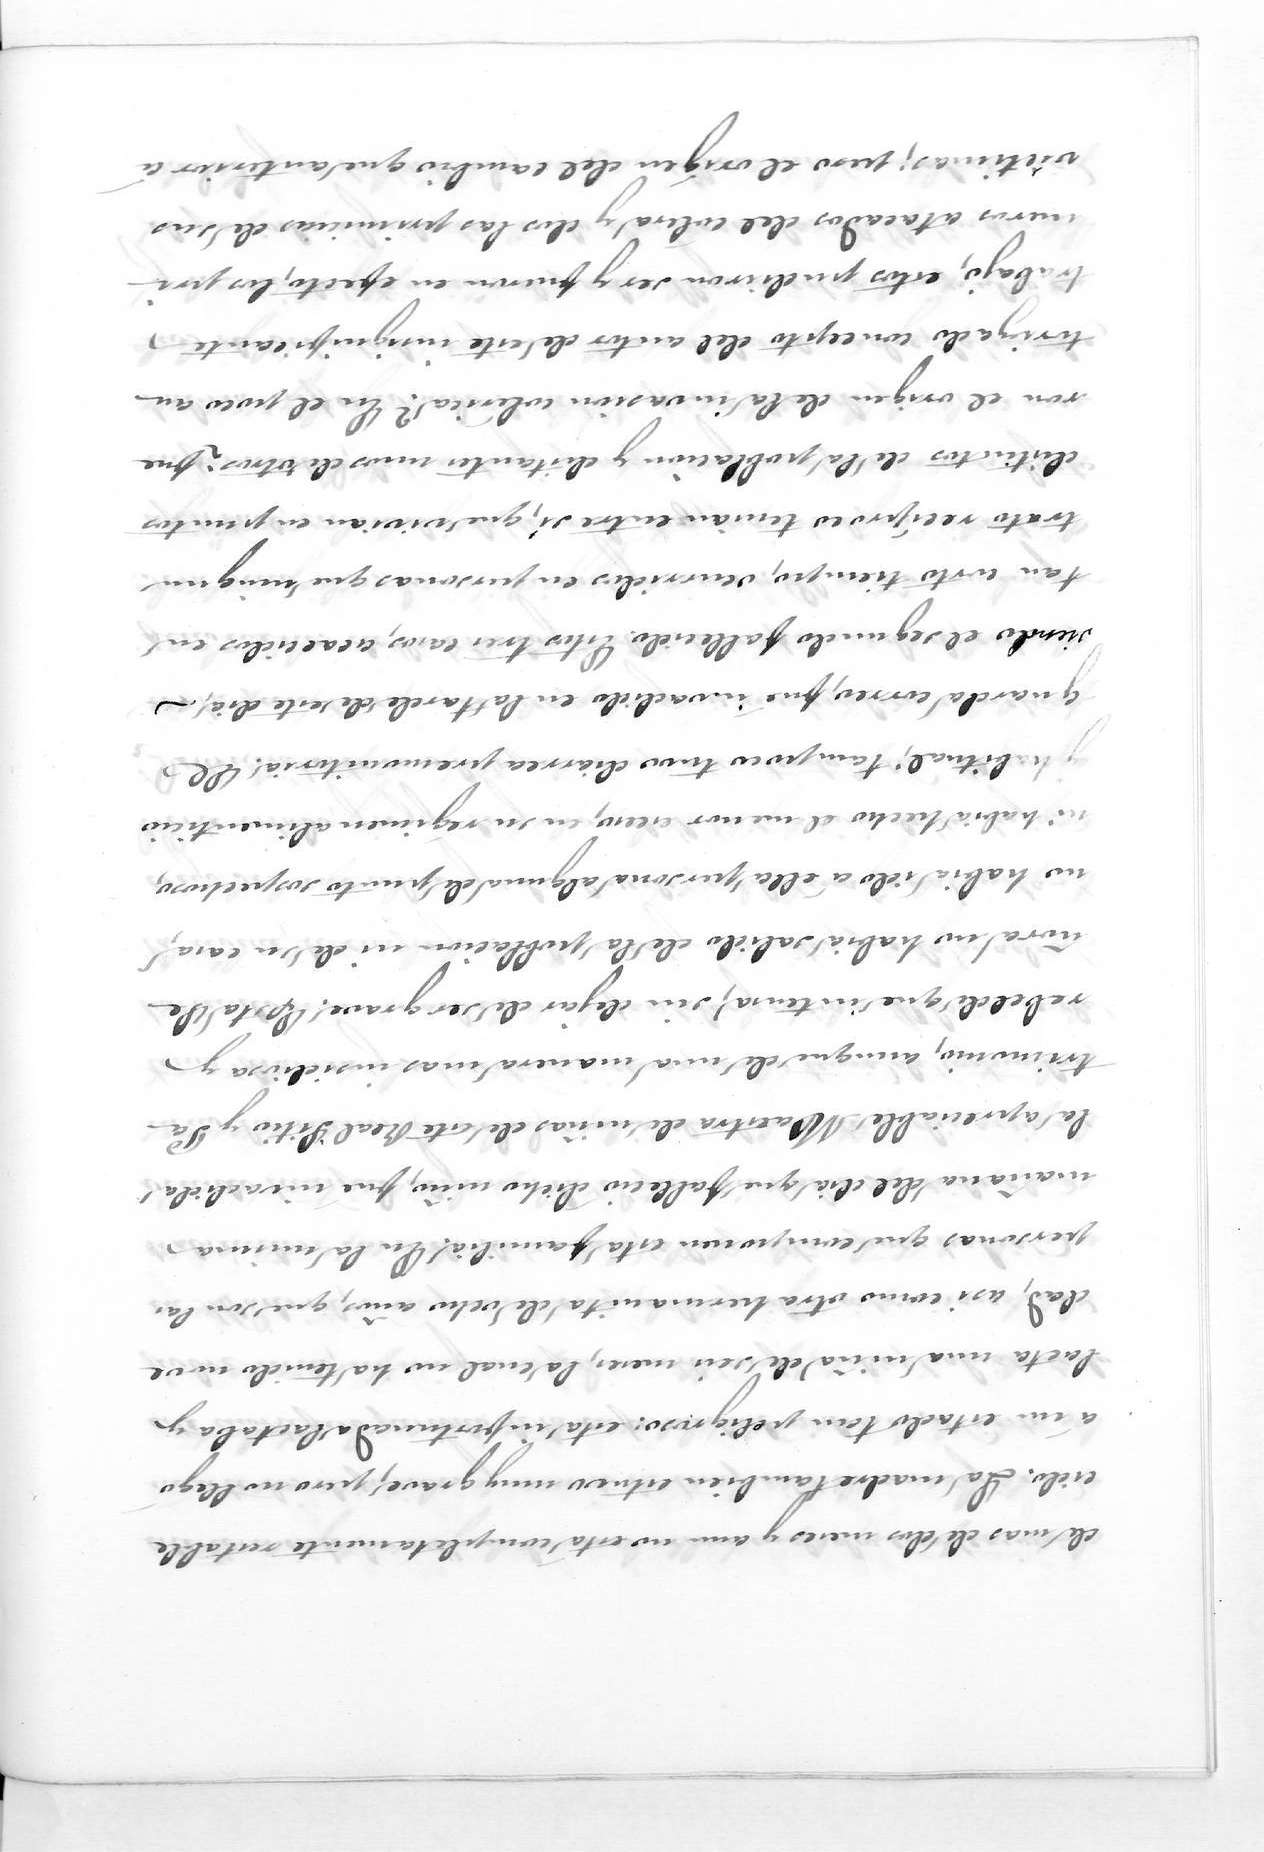 de mas de dos meses y aun no está completamente restable
cido. La madre tambien estuvo muy grave, pero no llegó
á un estado tan peligroso: esta infortunada lactaba y
lacta una niña de seis meses, la cual no ha tenido nove
dad, asi como otra hermanita de ocho años, que son las
personas que componen esta familia. En la misma
mañana del dia que falleció dicho niño, fue invadida
la apreciable Maestra de niñas de este Real Sitio y Pa-
trimonio, aunque de una manera mas insidiosa y
rebelde que intensa, sin dejar de ser grave. Esta Se
ñora no habia salido de la poblacion ni de su casa,
no habia ido á ella persona alguna de punto sospechoso,
ni habia hecho el menor esceso, en su regimen alimenticio
y habitual; tampoco tuvo diarrea premonitoria. El
guarda correo, fue invadido en la tarde de este dia,
siendo el segundo fallecido. Estos tres casos, acaecidos en
tan corto tiempo, ocurridos en personas que ningun
trato reciproco tenian entre sí, que vivian en puntos
distintos de la poblacion y distantes unos de otros ¿fue
ron el origen de la invasion colerica? En el poco au
torizado concepto del autor de este insignificante
trabajo, estos pudieron ser y fueron en efecto, los pri-
meros atacados del colera y dos las primicias de sus
victimas; pero el origen del cambio que anterior á